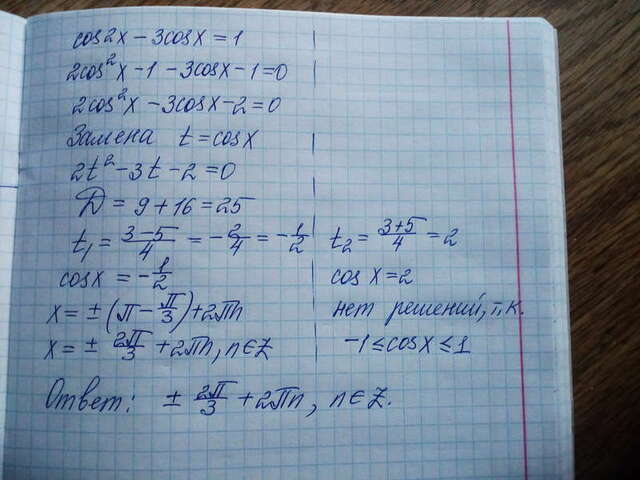 cos2x - 3cosx = 1
2cos²x - 1 - 3cosx - 1 = 0
2cos²x - 3cosx - 2 = 0
Замена t = cosx
2t² - 3t - 2 = 0
D = 9 + 16 = 25
t₁ = (3-5)/4 = -2/4 = -1/2
cosx = -1/2
x = ±(π - π/3) + 2πn
x = ± 2π/3 + 2πn, n∈Z
t₂ = (3+5)/4 = 2
cos x = 2
нет решений, т.к.
-1 ≤ cosx ≤ 1
Ответ: ± 2π/3 + 2πn, n∈Z.